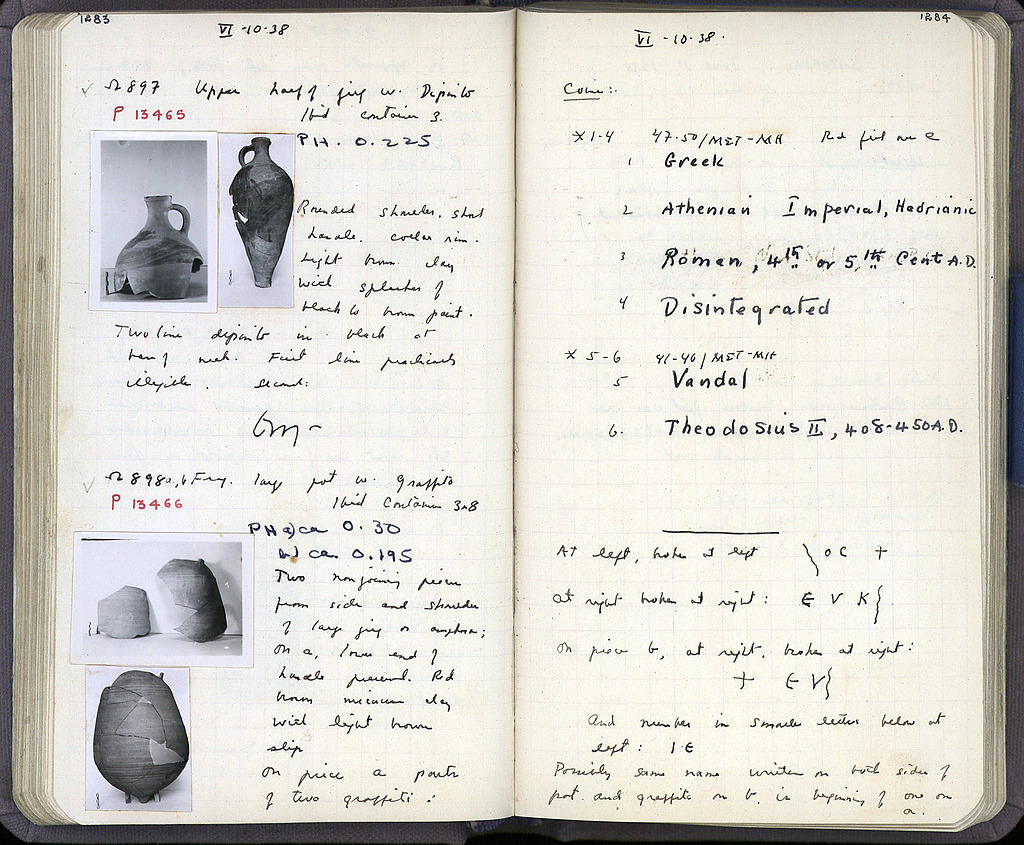 1283
VI -10-38
✓ Ω 897 Upper half of jug w. Dipinto
P 13465 Ibid container 3.
PH. 0.225
Rounded shoulder, short
handle. collar rim.
Light brown clay
with splashes of
black to brown paint.
Two line dipinto in black at
base of neck. First line practically
illegible. Second:
✓ Ω 898a,b Frag. large pot w. graffito
P 13466 Ibid Container 3 & 8
PH a) ca 0.30
b) ca 0.195
Two nonjoining pieces
from side and shoulder
of large jug or amphora;
on a, lower end of
handle preserved. Red
brown micaceous clay
with light brown
slip
On piece a parts
of two graffiti:
1284
VI -10-38.
Coins:
X 1-4 47-50/ΜΣΤ-ΜΗ Red fill
1 Greek
2 Athenian Imperial, Hadrianic
3 Roman, 4th or 5th Cent A.D.
4 Disintegrated
X 5-6 41-46/ΜΣΤ-ΜΗ
5 Vandal
6. Theodosius II, 408-450 A.D.
At left, broken at left } O C +
at right broken at right: Є V K }
On piece b, at right, broken at right:
+ Є V }
And number in smaller letters below at
left: I Є
Possibly same name written on both sides of
pot. and graffito on b. is beginning of one on
a.